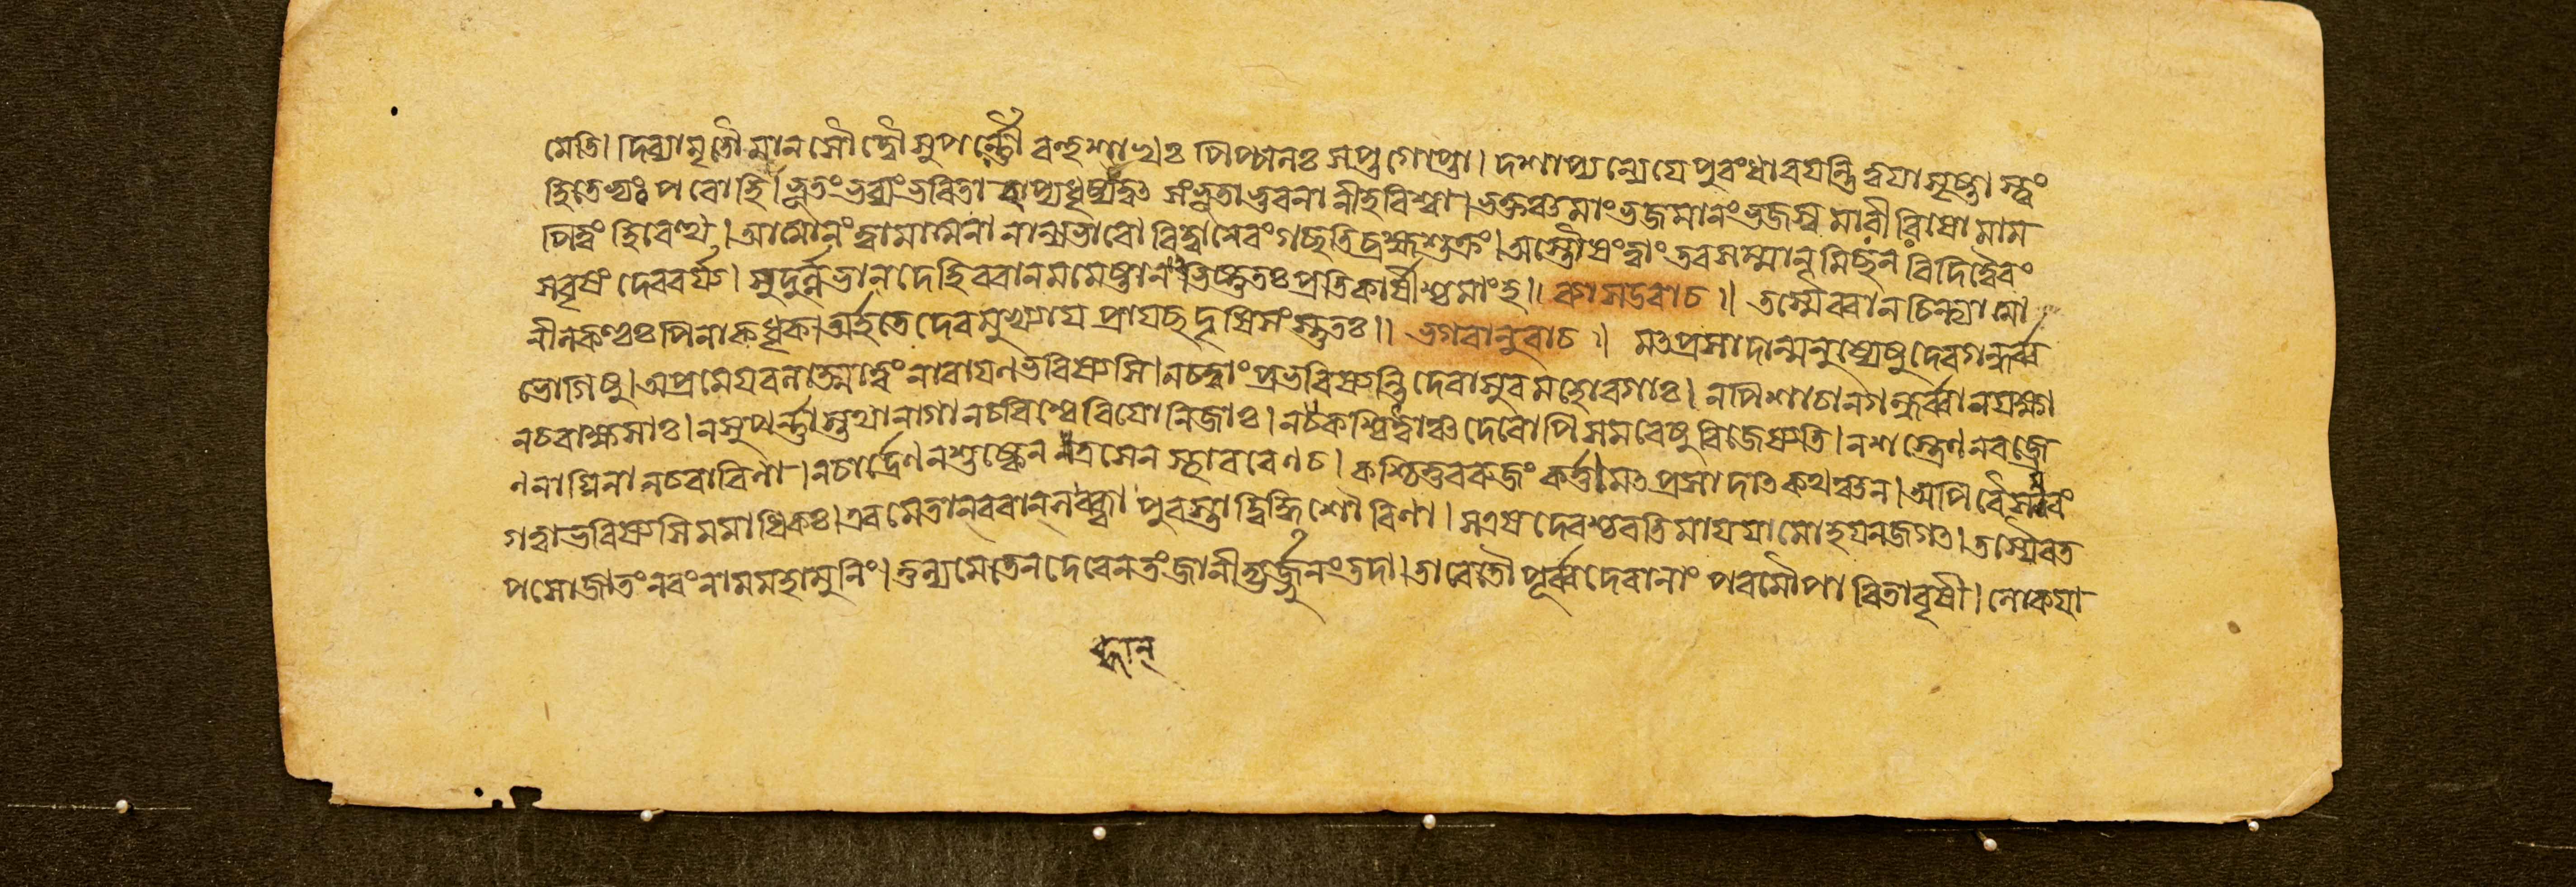 মেতি। দিব্যামৃতৌ মানসৌ দ্বৌ সুপর্ণ্ণৌ বহুশাখঃ পিপ্পলঃ সপ্তগোপ্তা। দশাপ্যন্যেযে পুরংধারযন্তি ত্বযাসৃষ্টাস্ত্বং
হিতেভ্যঃ পরোহি। ভূতংভব্যংভবিতা চাপ্যধৃষ্যং সংভূতা ভুবনানীহ বিশ্বা। ভক্তঞ্চমাংভজমানংভজস্ব মারীরিষো মাম
পিত্বং হিবেত্থ। আত্মানংত্বামাত্মনা নান্যভাবো বিদ্বানেবংগচ্ছতিব্রহ্মশুক্রং। অস্তৌষংত্বাং তবসম্মানমিচ্ছন
সবৃষং দেববর্য্য। সুদুর্ল্লভানদেহিবরানমমেষ্টান ভিষ্টুতঃ প্রতিকার্ষীশ্চমাংহ॥ ব্যাসউবাচ॥ তস্মৈবরানচিন্ত্যাত্মা
নীলকণ্ঠঃ পিনাকধৃক। অর্হতে দেবমুখ্যায প্রাযচ্ছদৃষিসংস্তুতঃ॥ ভগবানুবাচ॥ মৎপ্রসাদান্মনুষ্যেষু দেবগন্ধর্ব্ব
যোনিষু। অপ্রমেযবলাত্মাত্বং নারাযণভবিষ্যসি। নচত্বাং প্রভবিষ্যন্তি দেবাসুরমহোরগাঃ। নপিশাচানগন্ধর্ব্বানযক্ষা
নচরাক্ষসাঃ। নসুপর্ণ্ণাস্তথানাগানচবিশ্বে বিযোনিজাঃ। নচকশ্চিত্ত্বাঞ্চ দেবোপি সমরেষু বিজেষ্যতি। নশস্ত্রেণ নবজ্রে
ণনাগ্নিনা নচবাযিনা। নচার্দ্রেণ নশুষ্কেন নত্রসেন স্থাবরেণচ। কশ্চিত্তবরুজং কর্ত্তা মৎপ্রসাদাৎকথঞ্চন। অপি সমরং
গত্বাভবিষ্যসি মমাধিকঃ। এবমেতান্বরান্লব্ধ্বা পুরস্তাদ্বিদ্ধি শৌরিণা। সএষদেবশ্চরতি মাযযামোহযনজগত। তস্যৈবত
পসোজাতং নরংনাম মহামুনিং। তুল্যমেতেনদেবেন তংজানীহ্যর্জ্জুনং তদা। তাবেতৌ পূর্ব্বদেবানাং পরমৌপা বৃষী। লোকযা